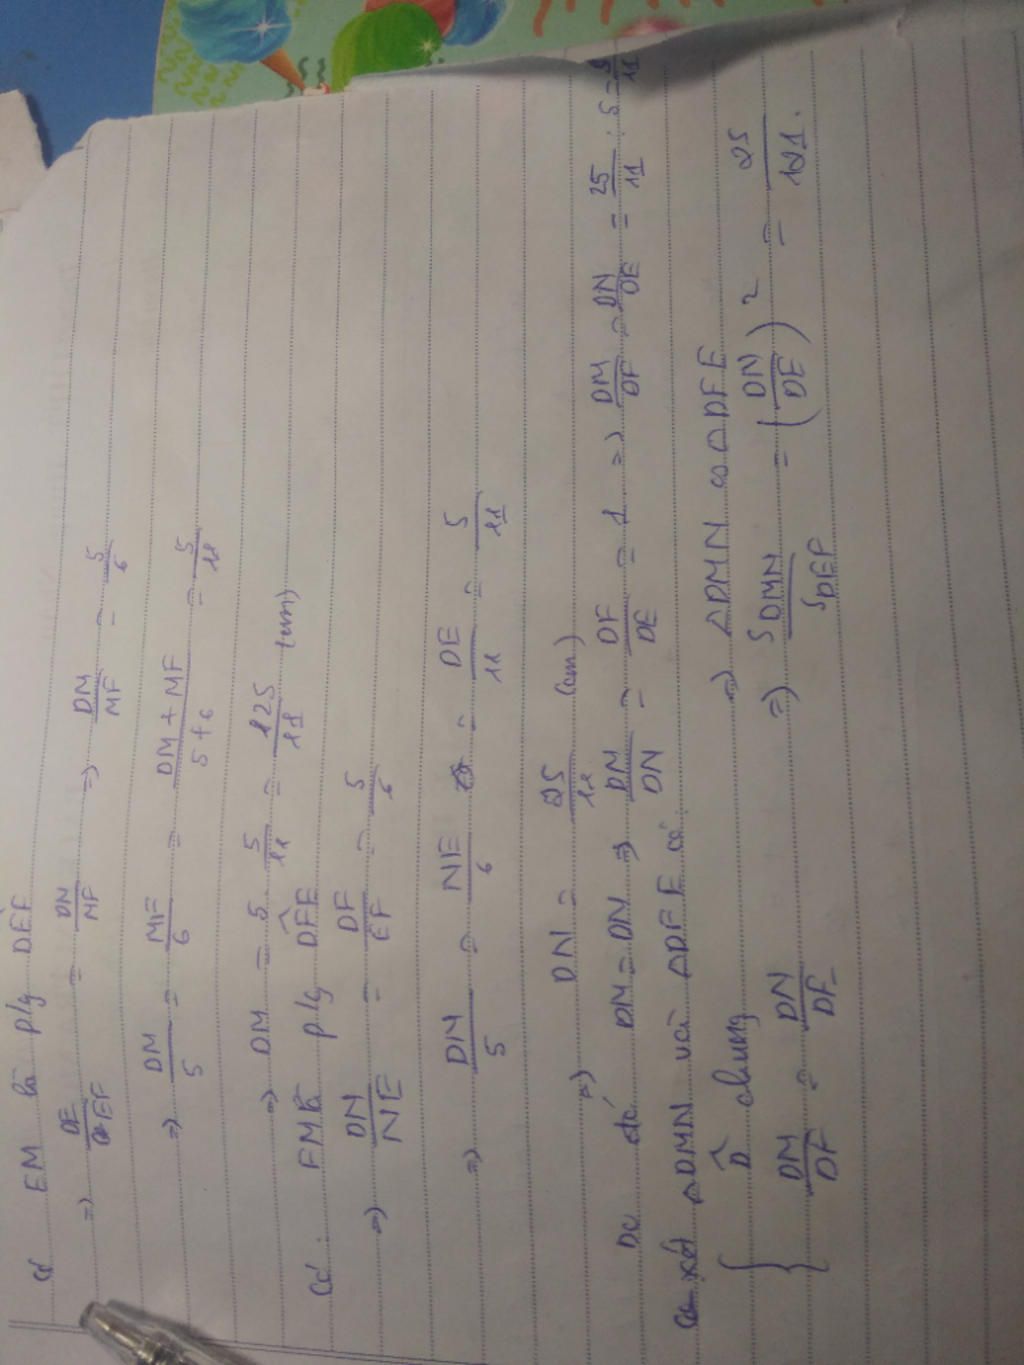 có EM là p/g DEF
=> DE/EF = DN/MF => DM/MF = 5/6
=> DM/5 = MF/6 = DM + MF/5 + 6 = 5/11
=> DM = 5 . 5/11 = 125/11 (cm)
Có: FN p/g DFE
=> DN/NE = DF/EF = 5/6
=> DN/5 = NE/6 = DE/11 = 5/11
=> DN = 25/11 (cm)
Do đó DM = DN => DM/DN = DF/DE = 1 => DM/DF = DN/DE = 25/11 : 5 = 5/11
xét △DMN và △DFE có:
D̂ chung
DM/DF = DN/DF
=> △DMN ∽ △DFE
=> S DMN/S DEF = (DN/DE)² = 25/121.